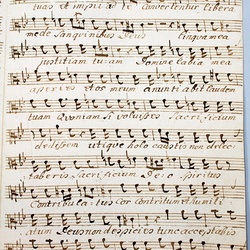 tuas et impii ad te Convertentur libera
mede Sanguinibus Deus linguamea
justitiam tuam Domine labia mea
aperies et os meum anuntiabit laudem
tuam Quoniam si voluisses Sacrificium
dedissem utique holocaustis non delec:
taberis Sacrificium Deo Spiritus
Contribulatus Cor contritum et humili
atum Deus non despicies tunc acceptabis